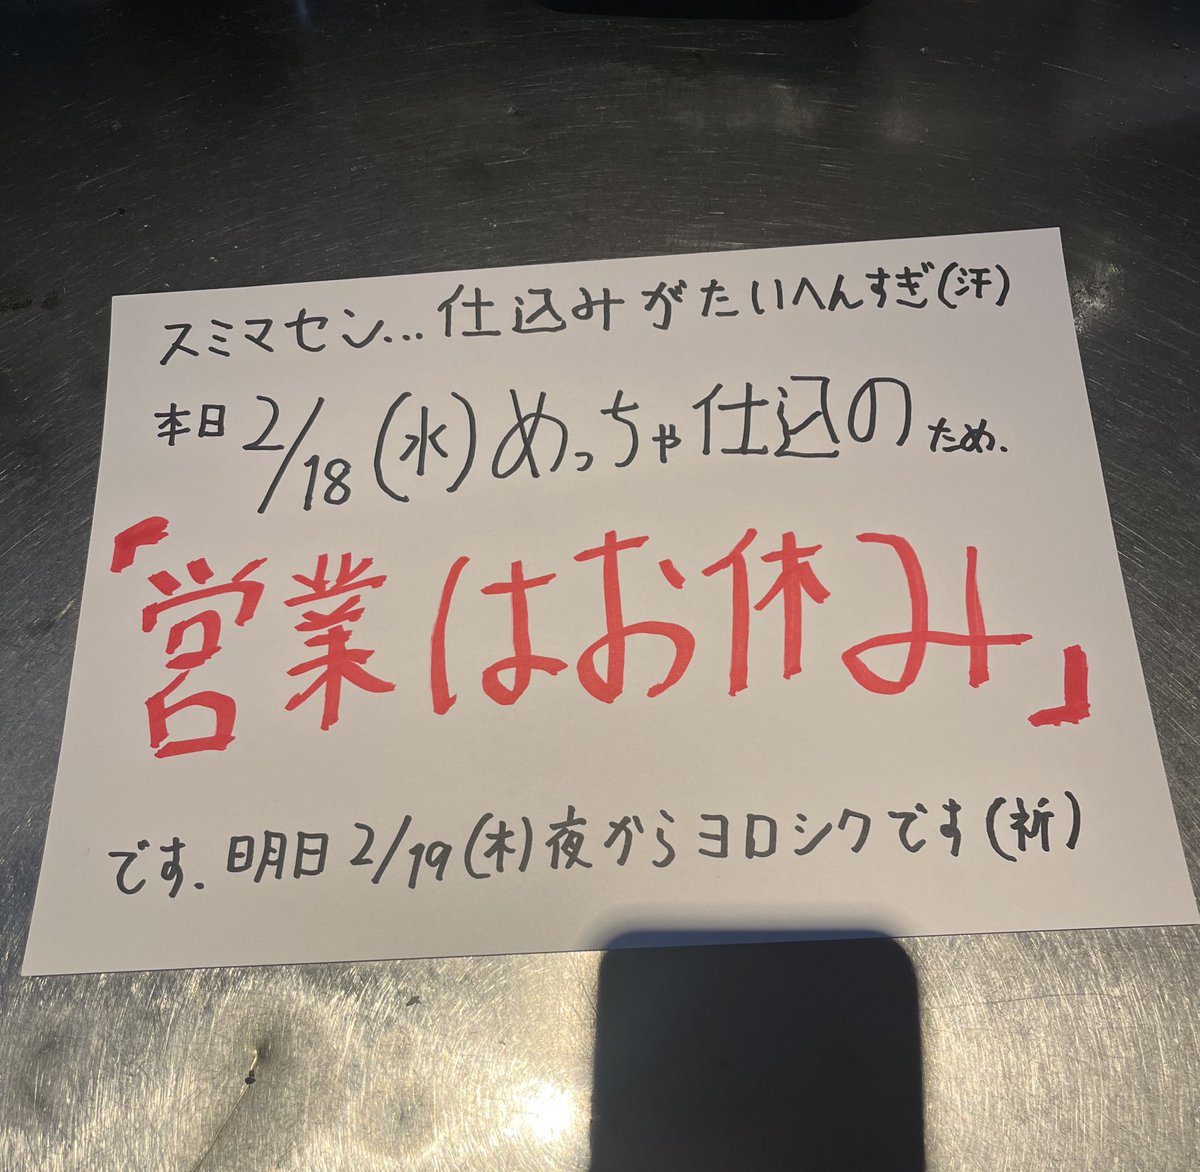 スミマセン...仕込みがたいへんすぎ(汗)
本日2/18(水)めっちゃ仕込のため.
「営業はお休み」
です.明日2/19(木)夜からヨロシクです(祈)